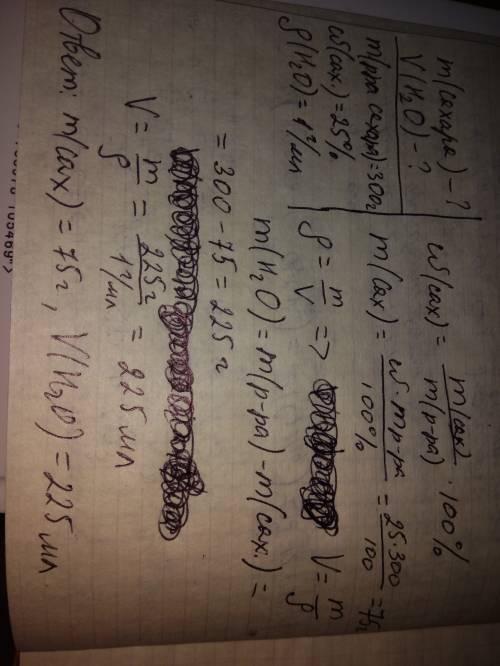 m(сахара) - ?
V(H₂O) - ?
m(р-ра сахара) = 300г
ω(сах) = 25%
ρ(H₂O) = 1г/мл
ω(сах) = m(сах) / m(р-ра) · 100%
m(сах) = ω · mр-ра / 100% = 25·300 / 100 = 75г
ρ = m/V => V = m/ρ
m(H₂O) = m(р-ра) - m(сах.) =
= 300 - 75 = 225г
V = m/ρ = 225г / 1г/мл = 225 мл
Ответ: m(сах) = 75г, V(H₂O) = 225 мл.